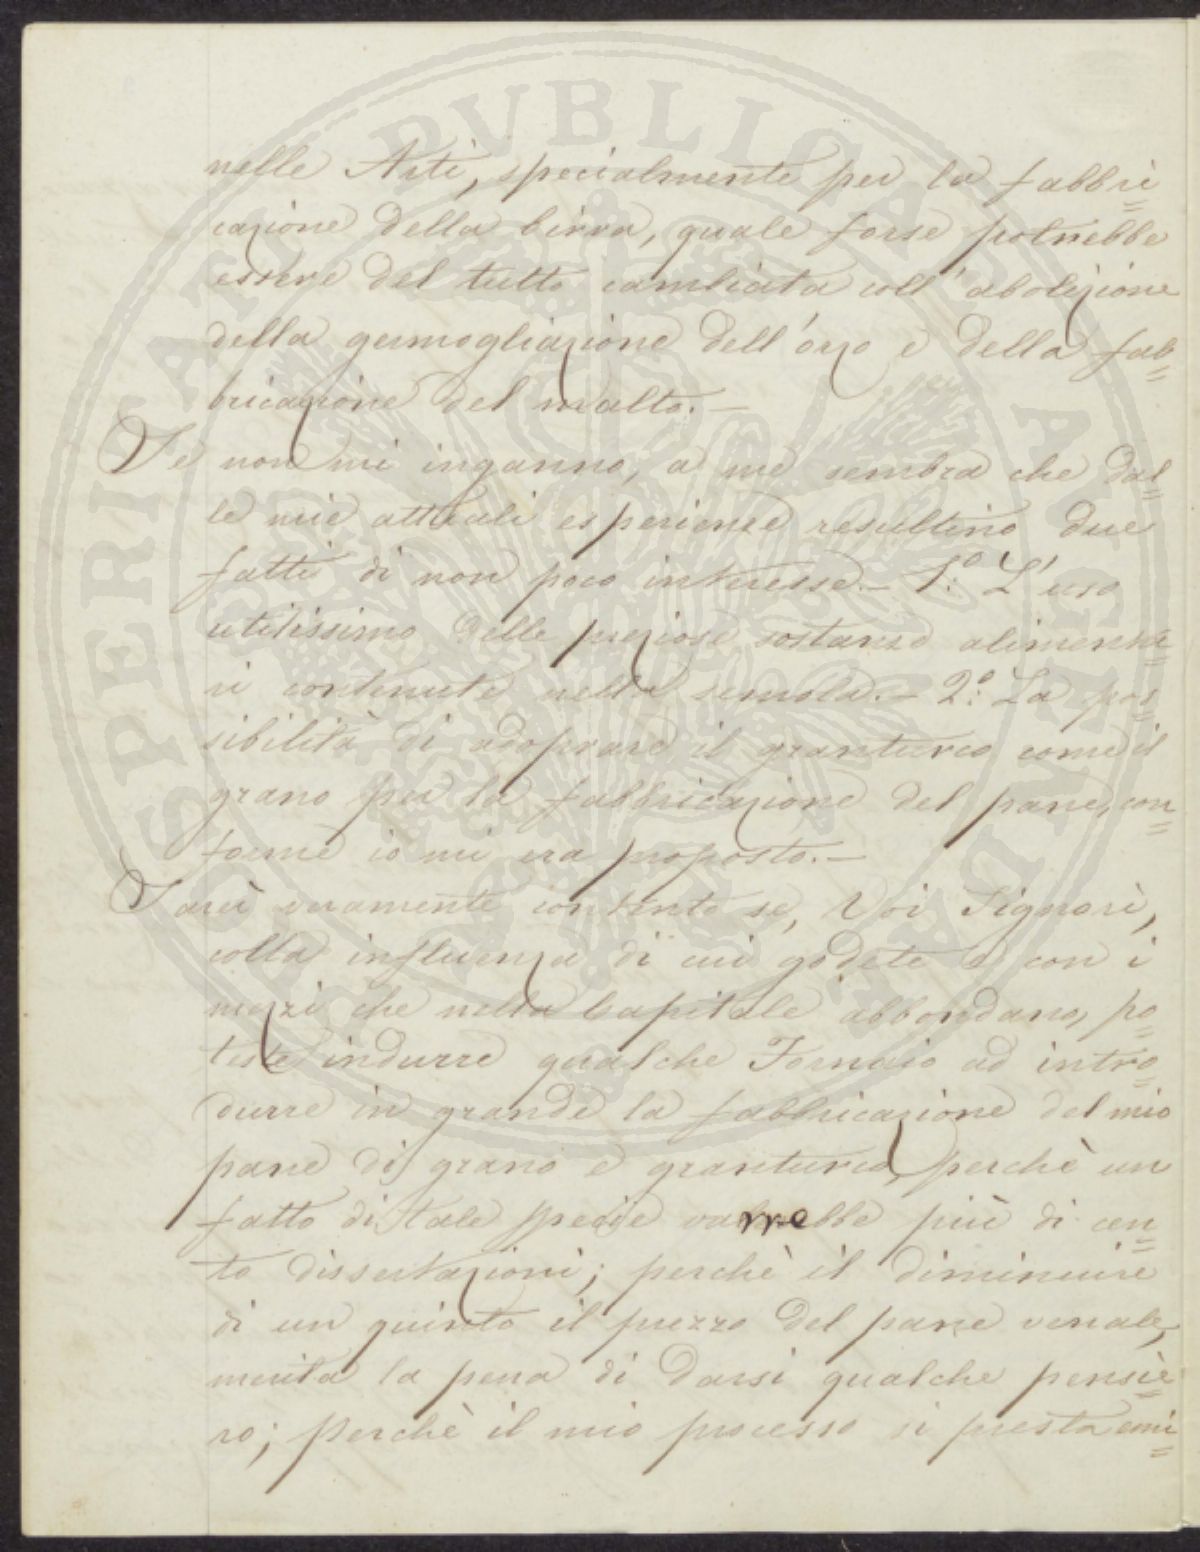 nelle Arti, specialmente per la fabbri=
cazione della birra, quale forse potrebbe
essere del tutto cambiata coll'abolizione
della germogliazione dell'orzo e della fab=
bricazione del malto.—
Se non mi inganno, a me sembra che dal=
le mie attuali esperienze resultino due
fatti di non poco interesse.— 1.° L'uso
utilissimo delle preziose sostanze alimenta=
ri contenute nella semola.— 2.° La pos=
sibilità di adoprare il granturco come il
grano per la fabbricazione del pane, con=
forme io mi era proposto.—
Sarei veramente contento se, Voi Signori,
colla influenza di cui godete e con i
mezzi che nella Capitale abbondano, po=
teste indurre qualche Fornaio ad intro=
durre in grande la fabbricazione del mio
pane di grano e granturco, perchè un
fatto di tale specie varrebbe più di cen=
to dissertazioni; perchè il diminuire
di un quinto il prezzo del pane venale,
merita la pena di darsi qualche pensie=
ro; perchè il mio processo si presta emi=
PROSPERITATI PUBLICAE AUGENDAE